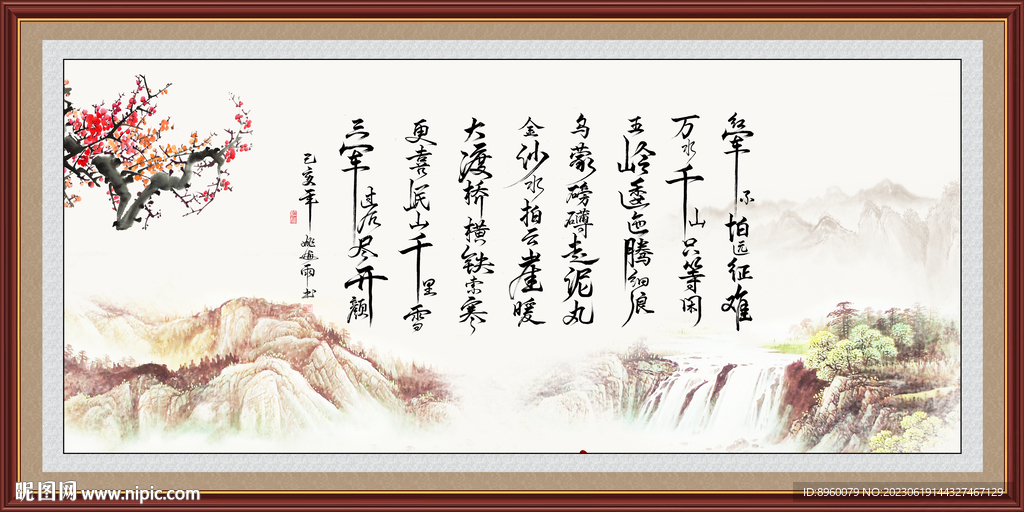 红军不怕远征难
万水千山只等闲
五岭逶迤腾细浪
乌蒙磅礴走泥丸
金沙水拍云崖暖
大渡桥横铁索寒
更喜岷山千里雪
三军过后尽开颜
己亥年
雨书
昵图网 www.nipic.com
ID:8960079 NO:20230619144327467129